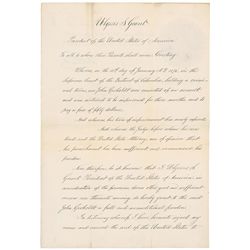 Ulysses S. Grant,
President of the United States of America,
To all to whom these Presents shall come, Greeting:
Whereas, on the day of January A.D. 187 , in the
Supreme Court of the District of Columbia, holding a
term, one John was convicted of an assault
and was sentenced to be imprisoned for three months and to
pay a fine of fifty dollars;
And whereas his term of imprisonment has nearly expired;
And whereas, the Judge before whom he was
tried and the District Attorney, are of opinion that his
punishment has been sufficient and recommend his
pardon:
Now therefore, be it known, that I, Ulysses S.
Grant, President of the United States of America, in
consideration of the premises, divers other good and sufficient
reasons me thereunto moving, do hereby grant to the said
John a full and unconditional pardon.
In testimony whereof, I have hereunto signed my
name and caused the seal of the United States to